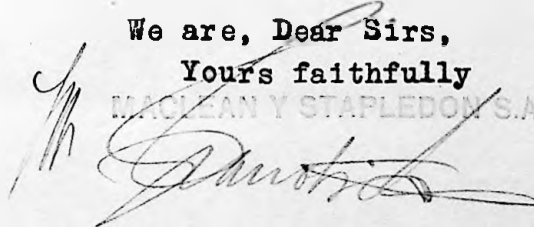 We are, Dear Sirs,
Yours faithfully
MACLEAN Y STAPLEDON S.A